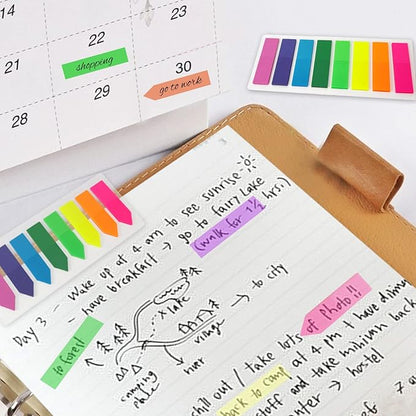 16
22
23
14
shopping
21
29
30
go to work
28
Day 3 - Wake up at 4 am to see sunrise
- have breakfast → go to fairy Lake
(walk for 1½ hrs!)
to forest
lake
→ to city
village
river
camping place
of photo!!
chill out / take lots
back to camp at 4 PM
off and take minimum
→ hostel
7